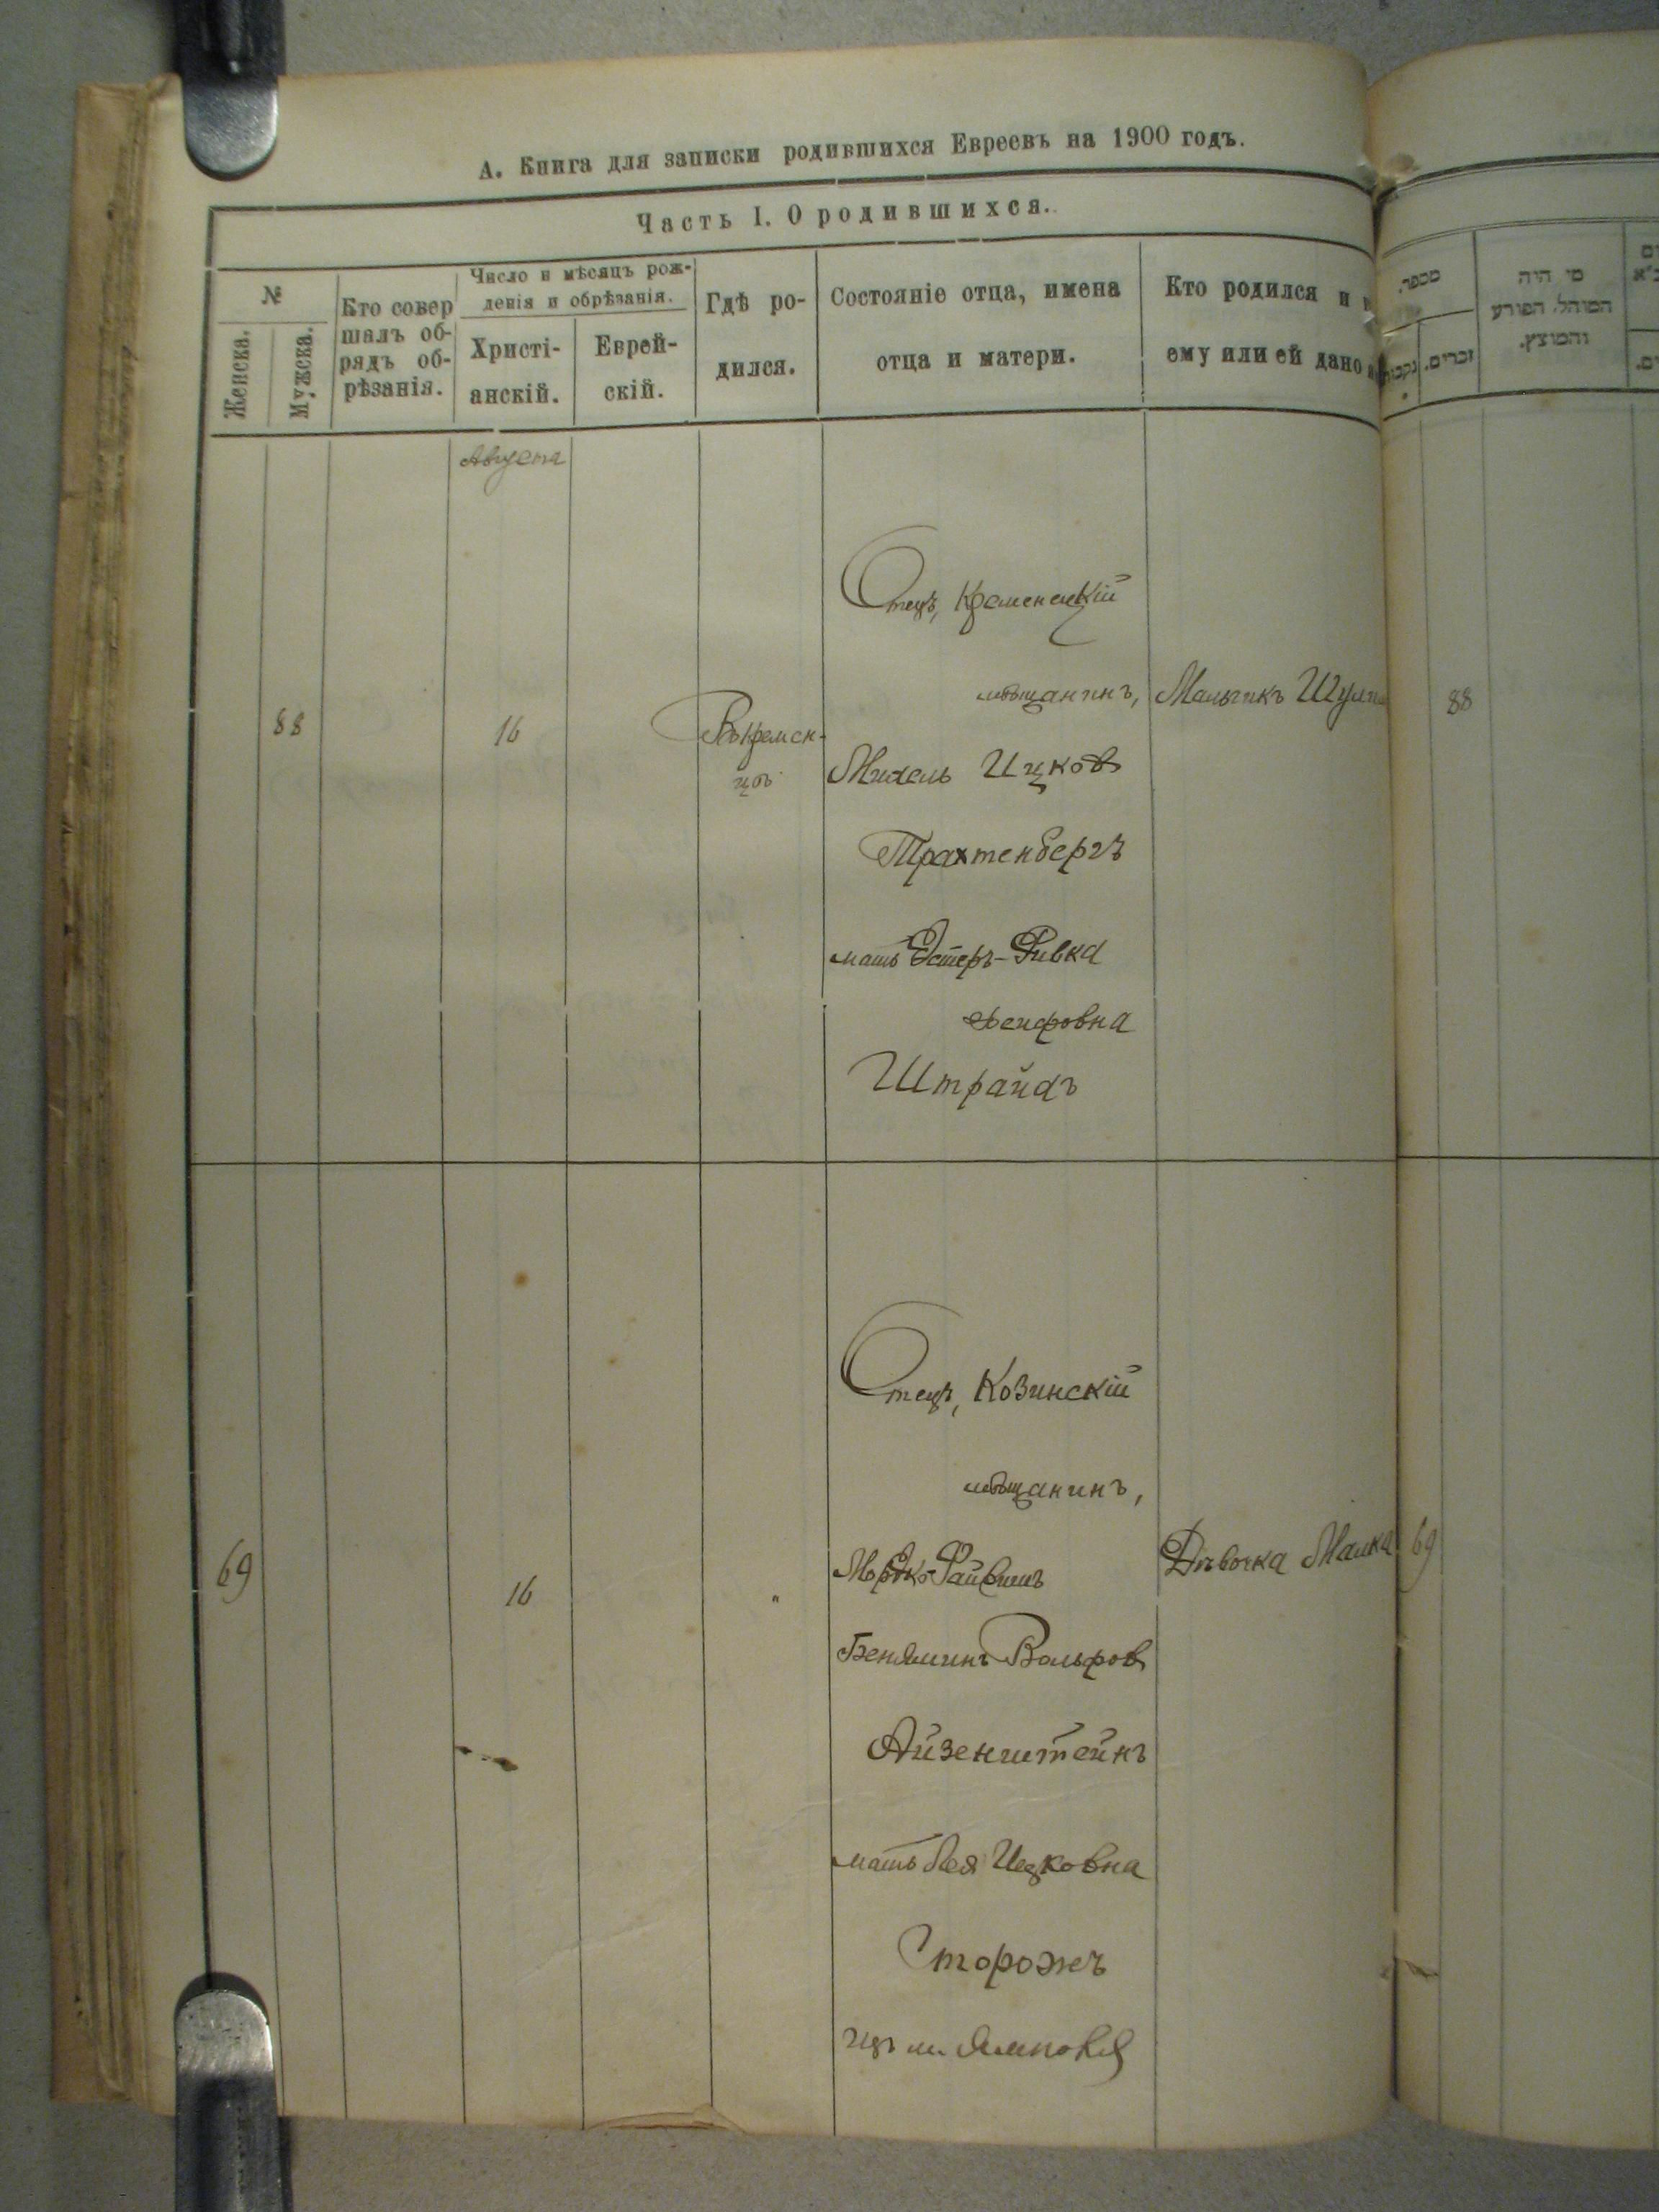 А. Книга для записки родившихся Евреевъ на 1900 годъ.
Часть I. О родившихся.
№
Женска.
Мужска.
Кто совер
шалъ об-
рядъ об-
рѣзанія.
Число и мѣсяцъ рож-
денія и обрѣзанія.
Христі-
анскій.
Еврей-
скій.
Гдѣ ро-
дился.
Состояніе отца, имена
отца и матери.
Кто родился и
ему или ей дано
מספר.
זכרים.
מי היה
המוהל הפורע
והמוצץ.
Августа
88
16
Въ Кремен-
цѣ
Отецъ, Кременецкій
мѣщанинъ,
Михель Ицков
Трахтенбергъ
мать Эстеръ-Ривка
Штрайхъ
Мальчикъ
88
69
16
"
Отецъ, Козинскій
мѣщанинъ,
Мордко-Файвишъ
Бенямин Вольфов
Айзенштейнъ
мать Лея Ицковна
Сторожъ
изъ м. Ямполя
Дѣвочка Малка
69